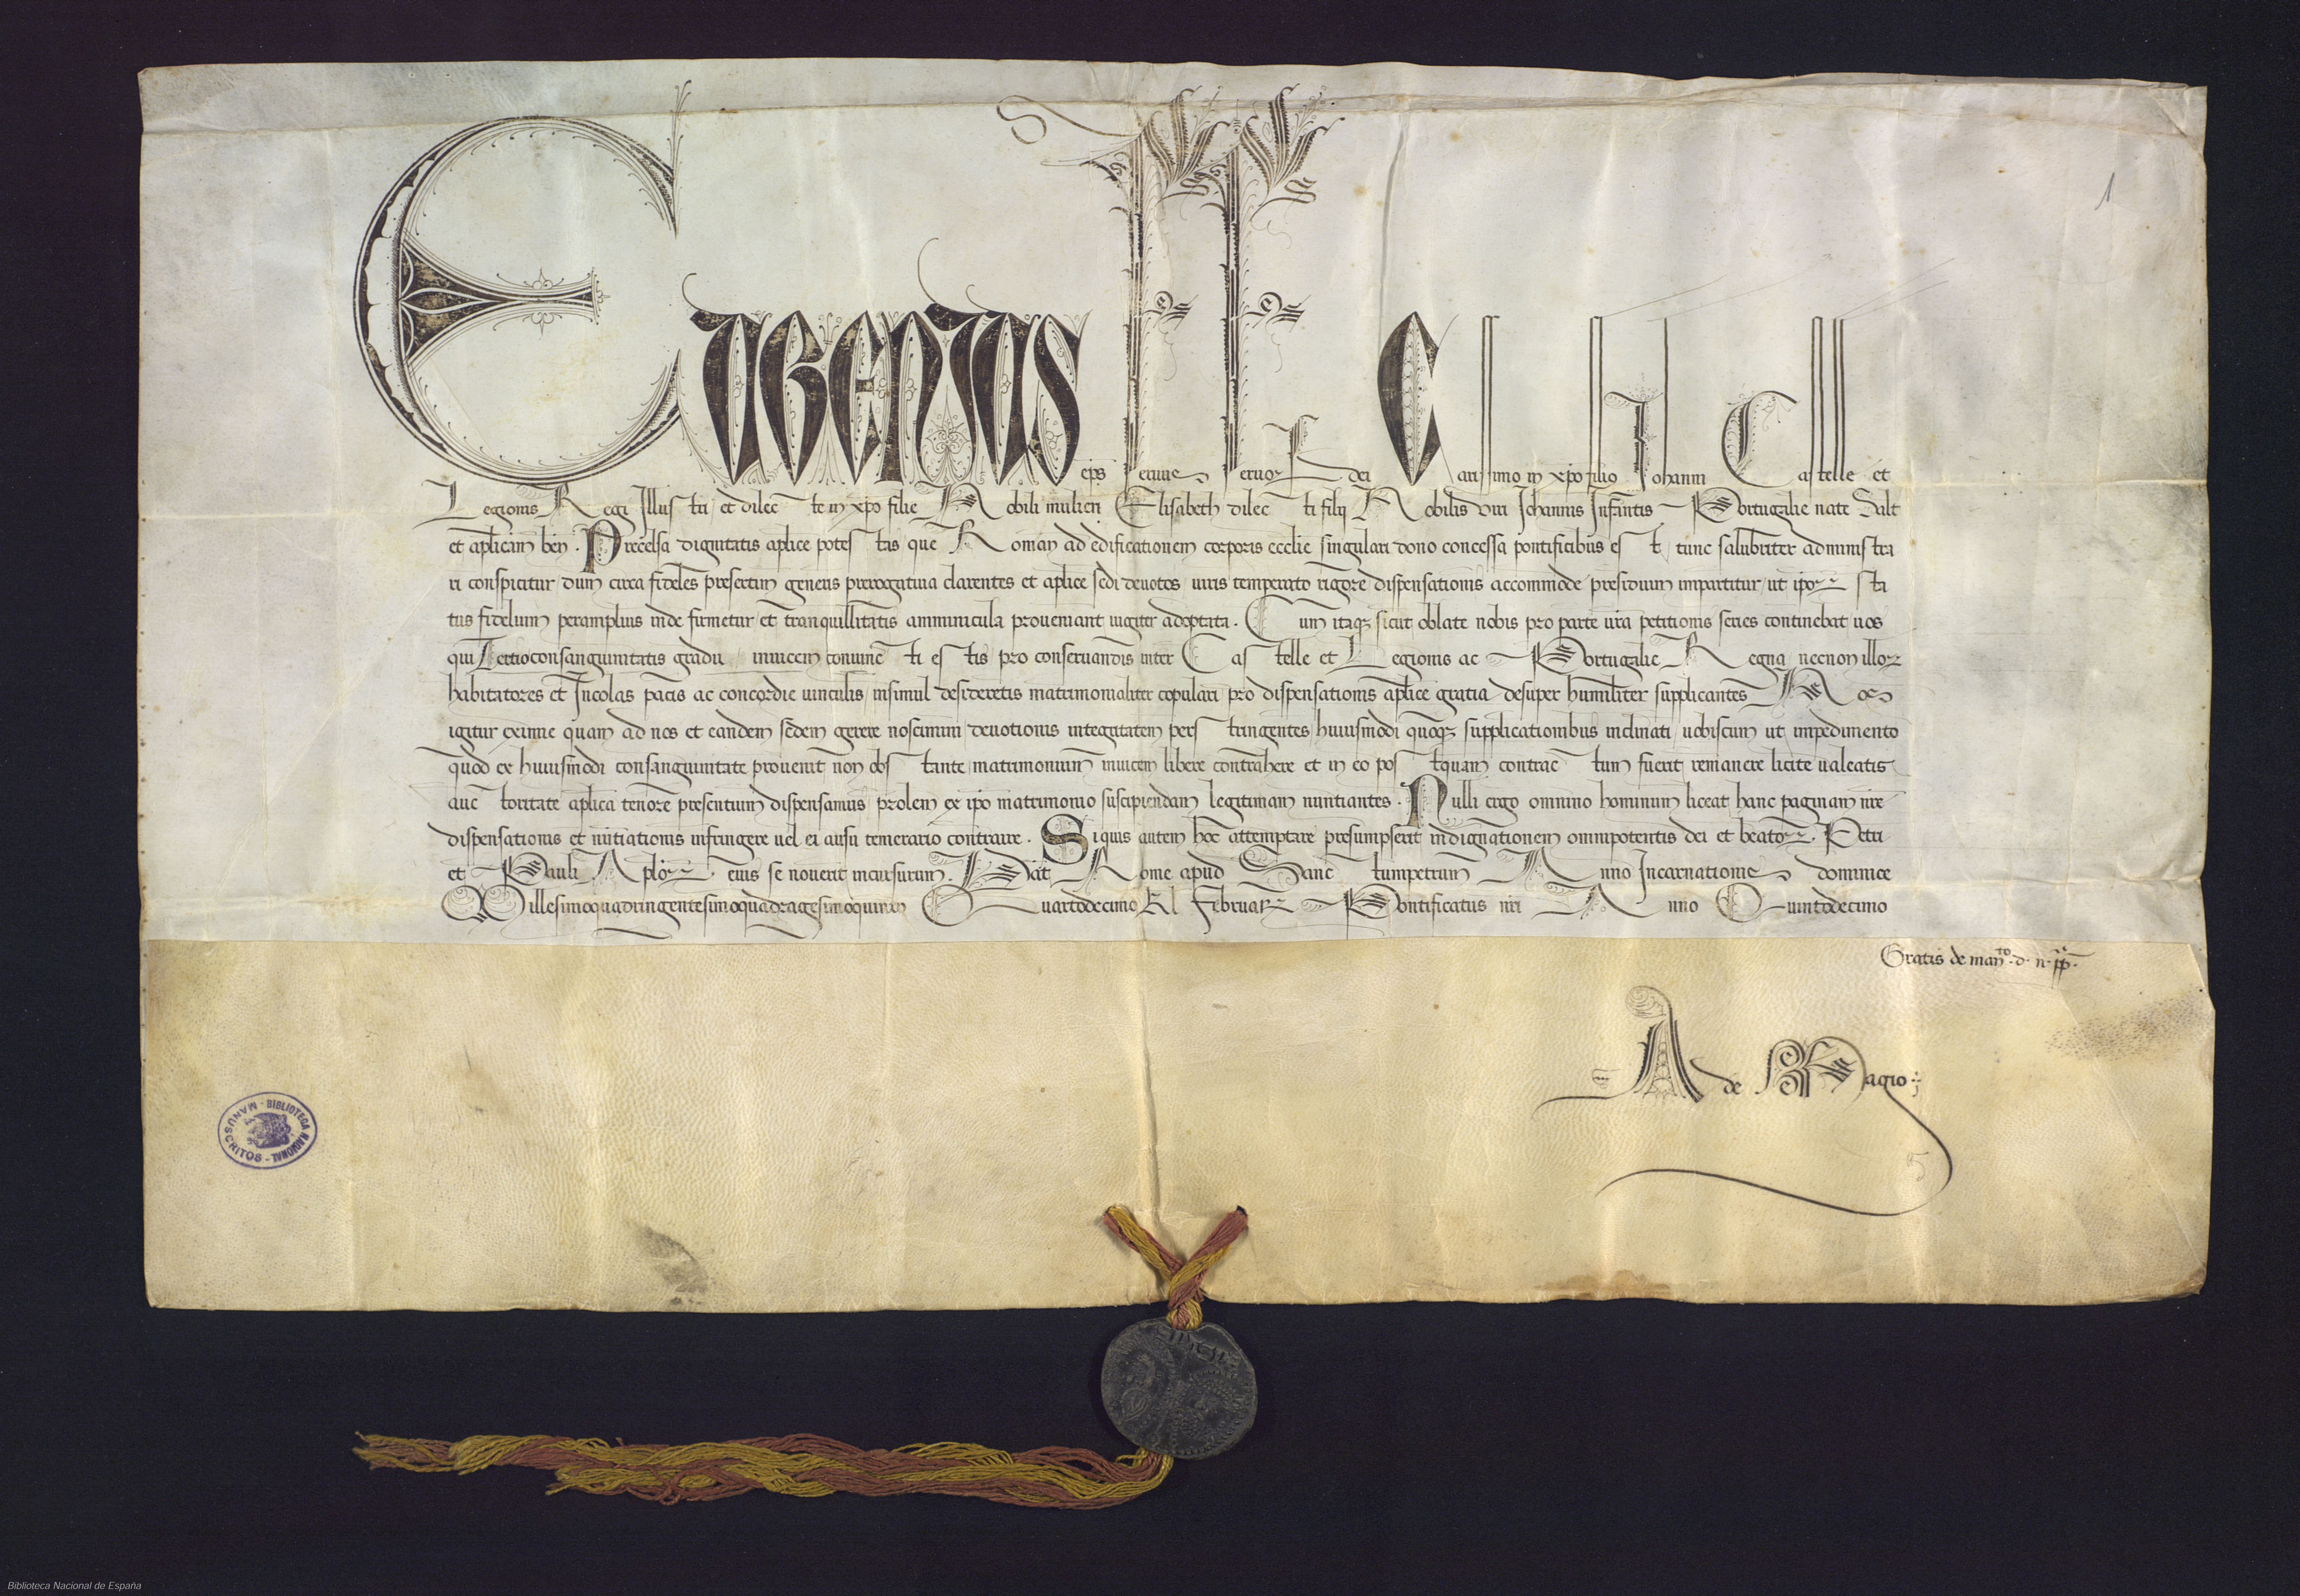 Eugenius eps seruus seruoꝝ dei Carissimo in xpo filio Johanni Castelle et
Legionis Regi Illustri et dilecte in xpo filie Nobili mulieri Elisabeth dilecti filij Nobilis viri Johannis Infantis Portugalie nate Salt
et aplicam ben. Precelsa dignitatis aplice potestas que Roman ad edificationem corporis ecclie singulari dono concessa pontificibus est tunc salubriter administra
ri conspicitur dum circa fideles presertim generis prerogatiua clarentes et aplice sedi deuotos iuris temperato rigore dispensationis accommode presidium impartitur ut ipoꝝ sta
tus fidelium peramplius inde firmetur et tranquillitatis amminicula proueniant iugiter adoptata. Cum itaqꝫ sicut oblate nobis pro parte vra petitionis series continebat uos
qui Tertio consanguinitatis gradu inuicem coniuncti estis pro conseruandis inter Castelle et Legionis ac Portugalie Regna necnon illoꝝ
habitatores et Incolas pacis ac concordie uinculis insimul desideretis matrimonialiter copulari pro dispensationis aplice gratia desuper humiliter supplicantes Nos
igitur eximie quam ad nos et eandem sedem gerere noscimini deuotionis integritatem perstringentes huiusmodi quoqꝫ supplicationibus inclinati uobiscum ut impedimento
quod ex huiusmodi consanguinitate prouenit non obstante matrimonium inuicem libere contrahere et in eo postquam contractum fuerit remanere licite ualeatis
auctoritate aplica tenore presentium dispensamus prolem ex ipo matrimonio suscipiendam legitimam nuntiantes. Nulli ergo omnino hominum liceat hanc paginam nre
dispensationis et nutiationis infringere uel ei ausu temerario contraire. Siquis autem hoc attemptare presumpserit indignationem omnipotentis dei et beatoꝝ. Petri
et Pauli Aploꝝ eius se nouerit incursurum. Dat Rome apud Sanctumpetrum Anno Incarnationis dominice
Millesimoquadringentesimoquadragesimoquinto Quartodecimo Kl Februarꝝ Pontificatus nri Anno Quintodecimo
Gratis de manto. d. n. pp.
A de Magio
5
1
BIBLIOTECA NACIONAL - MANUSCRITOS -
Biblioteca Nacional de España